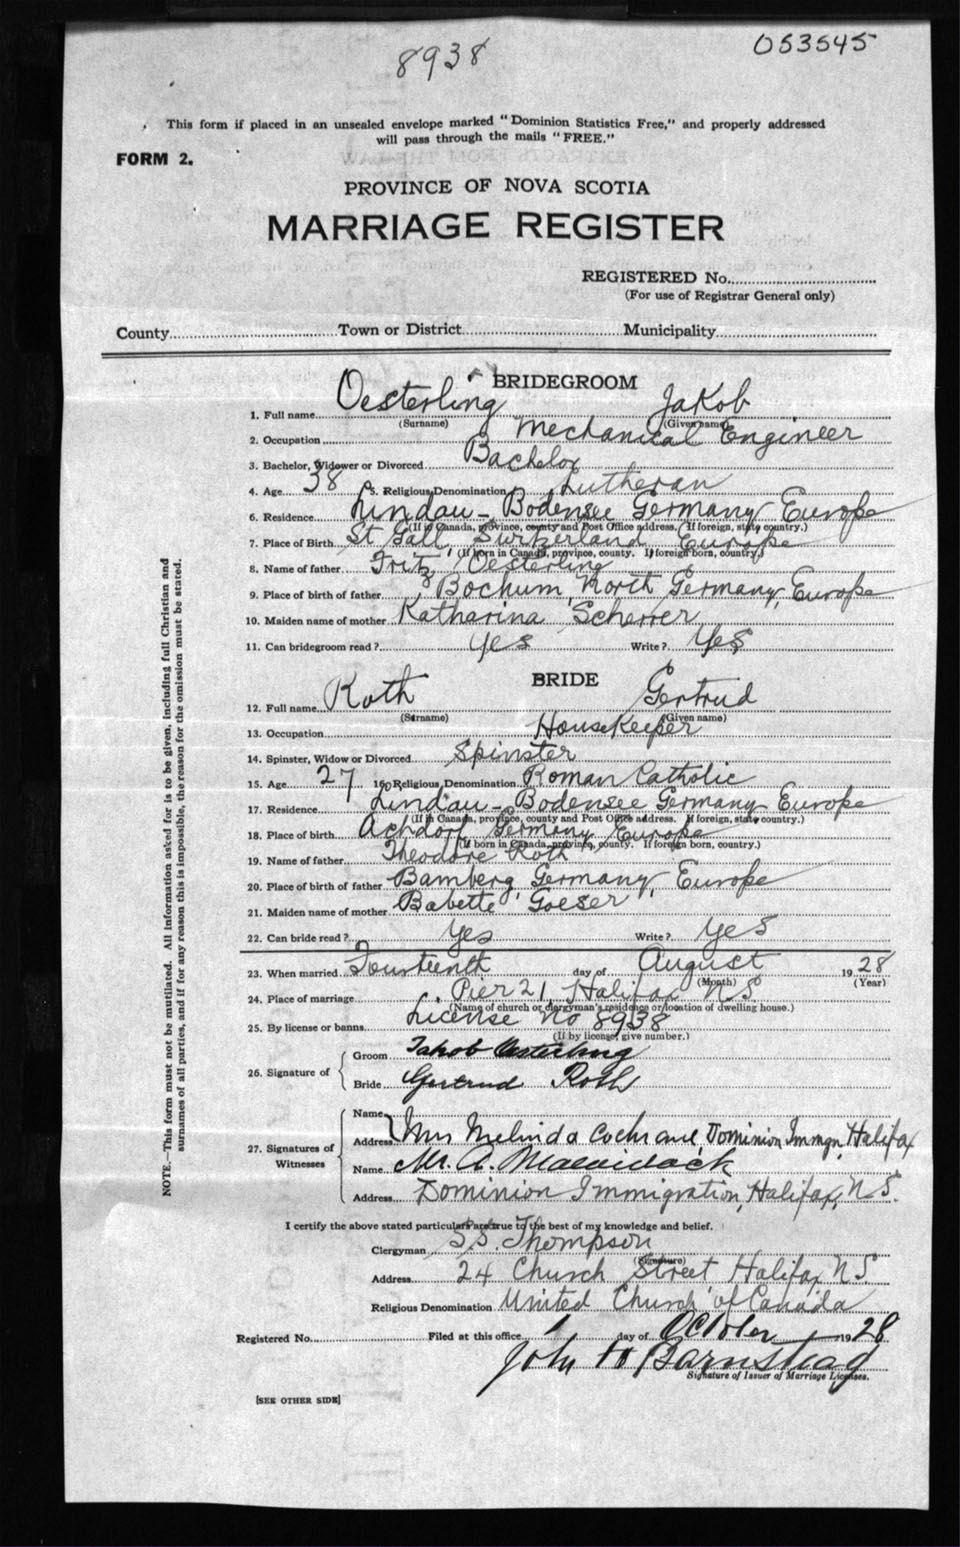 8938
053545
This form if placed in an unsealed envelope marked "Dominion Statistics Free," and properly addressed
will pass through the mails "FREE."
FORM 2.
PROVINCE OF NOVA SCOTIA
MARRIAGE REGISTER
REGISTERED No.
(For use of Registrar General only)
County Town or District Municipality
BRIDEGROOM
1. Full name Oesterling Jakob
(Surname) (Given name)
2. Occupation Mechanical Engineer
3. Bachelor, Widower or Divorced Bachelor
4. Age 38 5. Religious Denomination Lutheran
6. Residence Lindau - Bodensee Germany Europe
(If in Canada, province, county and Post Office address. If foreign, state country.)
7. Place of Birth St Gall, Switzerland Europe
(If born in Canada, province, county. If foreign born, country.)
8. Name of father Fritz Oesterling
9. Place of birth of father Bochum, North Germany, Europe
10. Maiden name of mother Katharina Scherrer
11. Can bridegroom read? Yes Write? Yes
BRIDE
12. Full name Roth Gertrud
(Surname) (Given name)
13. Occupation Housekeeper
14. Spinster, Widow or Divorced Spinster
15. Age 27 16. Religious Denomination Roman Catholic
17. Residence Lindau - Bodensee Germany Europe
(If in Canada, province, county and Post Office address. If foreign, state country.)
18. Place of birth Achdorf Germany Europe
(If born in Canada, province, county. If foreign born, country.)
19. Name of father Theodore Roth
20. Place of birth of father Bamberg, Germany, Europe
21. Maiden name of mother Babette Goeser
22. Can bride read? Yes Write? Yes
23. When married Fourteenth day of August 1928
(Month) (Year)
24. Place of marriage Pier 21, Halifax NS
(Name of church or clergyman's residence or location of dwelling house.)
25. By license or banns License No 8938
(If by license, give number.)
26. Signature of
Groom Jakob Oesterling
Bride Gertrud Roth
27. Signatures of Witnesses
Name
Address Mrs Melinda Cochrane Dominion Immgn, Halifax
Name Mr. A.
Address Dominion Immigration, Halifax, N.S.
I certify the above stated particulars are true to the best of my knowledge and belief.
Clergyman S.S. Thompson
(Signature)
Address 24 Church Street Halifax NS
Religious Denomination United Church of Canada
Registered No. Filed at this office 1 day of October 1928
John H Barnstead
Signature of Issuer of Marriage Licenses.
[SEE OTHER SIDE]
NOTE.—This form must not be mutilated. All information asked for is to be given, including full Christian and
surnames of all parties, and if for any reason this is impossible, the reason for the omission must be stated.